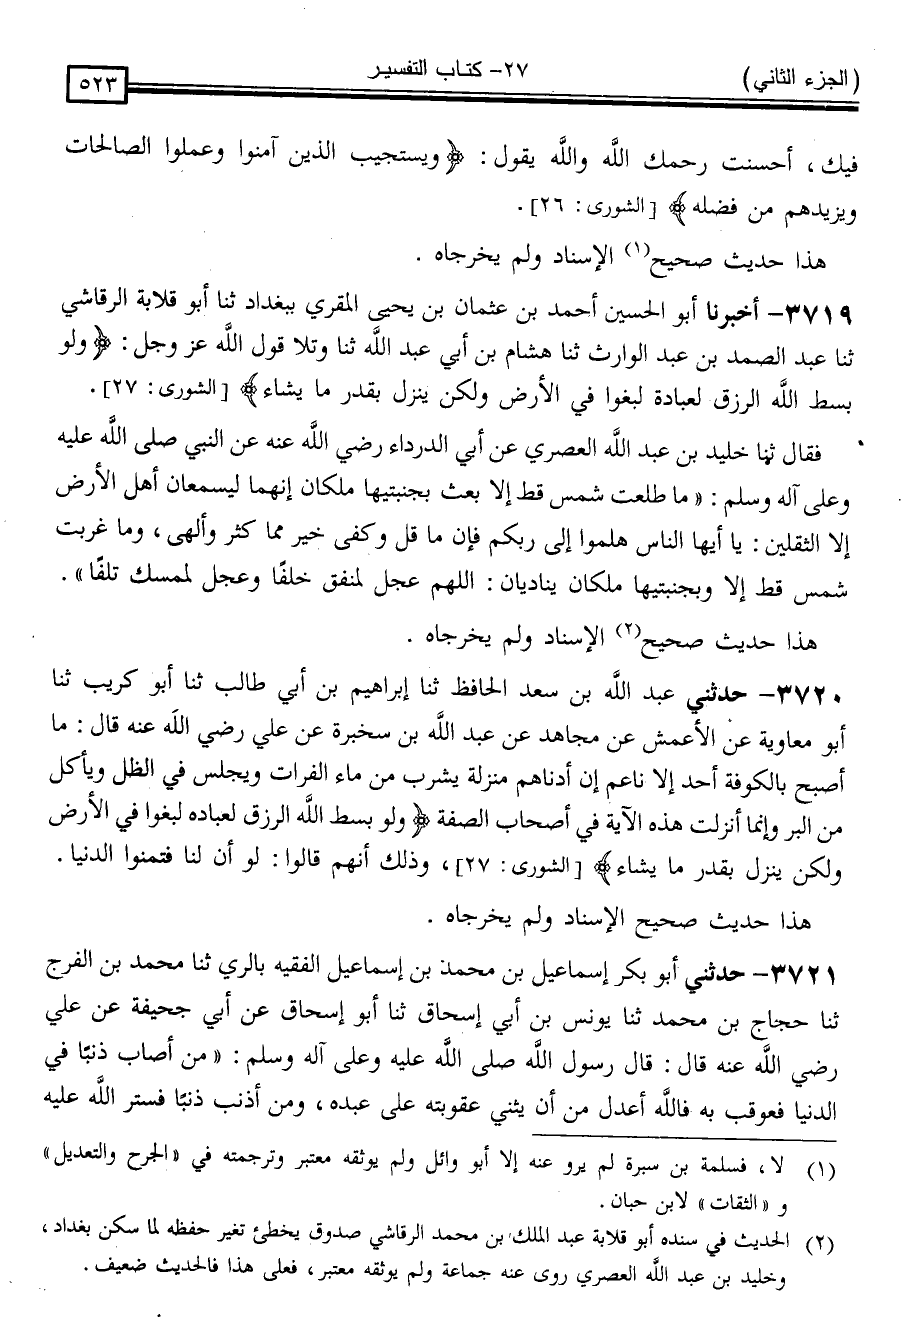 (الجزء الثاني) ٢٧- كتاب التفسير ٥٢٣
فيك ، أحسنت رحمك الله والله يقول : ﴿ ويستجيب الذين آمنوا وعملوا الصالحات
ويزيدهم من فضله ﴾ [الشورى: ٢٦] .
هذا حديث صحيح(١) الإسناد ولم يخرجاه .
٣٧١٩- أخبرنا أبو الحسين أحمد بن عثمان بن يحيى المقري ببغداد ثنا أبو قلابة الرقاشي
ثنا عبد الصمد بن عبد الوارث ثنا هشام بن أبي عبد الله ثنا وتلا قول الله عز وجل : ﴿ ولو
بسط الله الرزق لعبادة لبغوا في الأرض ولكن ينزل بقدر ما يشاء ﴾ [الشورى: ٢٧] .
فقال ثنا خليد بن عبد الله العصري عن أبي الدرداء رضي الله عنه عن النبي صلى الله عليه
وعلى آله وسلم : « ما طلعت شمس قط إلا بعث بجنبتيها ملكان إنهما ليسمعان أهل الأرض
إلا الثقلين : يا أيها الناس هلموا إلى ربكم فإن ما قل وكفى خير مما كثر وألهى ، وما غربت
شمس قط إلا وبجنبتيها ملكان يناديان : اللهم عجل لمنفق خلفًا وعجل لممسك تلفًا » .
هذا حديث صحيح(٢) الإسناد ولم يخرجاه .
٣٧٢٠- حدثني عبد الله بن سعد الحافظ ثنا إبراهيم بن أبي طالب ثنا أبو كريب ثنا
أبو معاوية عن الأعمش عن مجاهد عن عبد الله بن سخبرة عن علي رضي الله عنه قال : ما
أصبح بالكوفة أحد إلا ناعم إن أدناهم منزلة يشرب من ماء الفرات ويجلس في الظل ويأكل
من البر وإنما أنزلت هذه الآية في أصحاب الصفة ﴿ ولو بسط الله الرزق لعباده لبغوا في الأرض
ولكن ينزل بقدر ما يشاء ﴾ [الشورى: ٢٧] ، وذلك أنهم قالوا : لو أن لنا فتمنوا الدنيا .
هذا حديث صحيح الإسناد ولم يخرجاه .
٣٧٢١- حدثني أبو بكر إسماعيل بن محمد بن إسماعيل الفقيه بالري ثنا محمد بن الفرج
ثنا حجاج بن محمد ثنا يونس بن أبي إسحاق ثنا أبو إسحاق عن أبي جحيفة عن علي
رضي الله عنه قال : قال رسول الله صلى الله عليه وعلى آله وسلم : « من أصاب ذنبًا في
الدنيا فعوقب به فالله أعدل من أن يثني عقوبته على عبده ، ومن أذنب ذنبًا فستر الله عليه
(١) لا ، فسلمة بن سبرة لم يرو عنه إلا أبو وائل ولم يوثقه معتبر وترجمته في «الجرح والتعديل»
و «الثقات» لابن حبان .
(٢) الحديث في سنده أبو قلابة عبد الملك بن محمد الرقاشي صدوق يخطئ تغير حفظه لما سكن بغداد ،
وخليد بن عبد الله العصري روى عنه جماعة ولم يوثقه معتبر ، فعلى هذا فالحديث ضعيف .